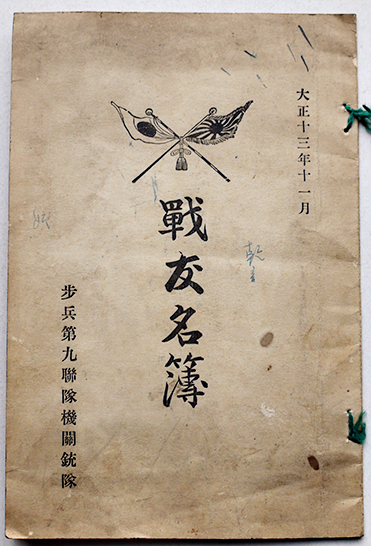 大正十三年十一月
戰友名簿
步兵第九聯隊機關銃隊